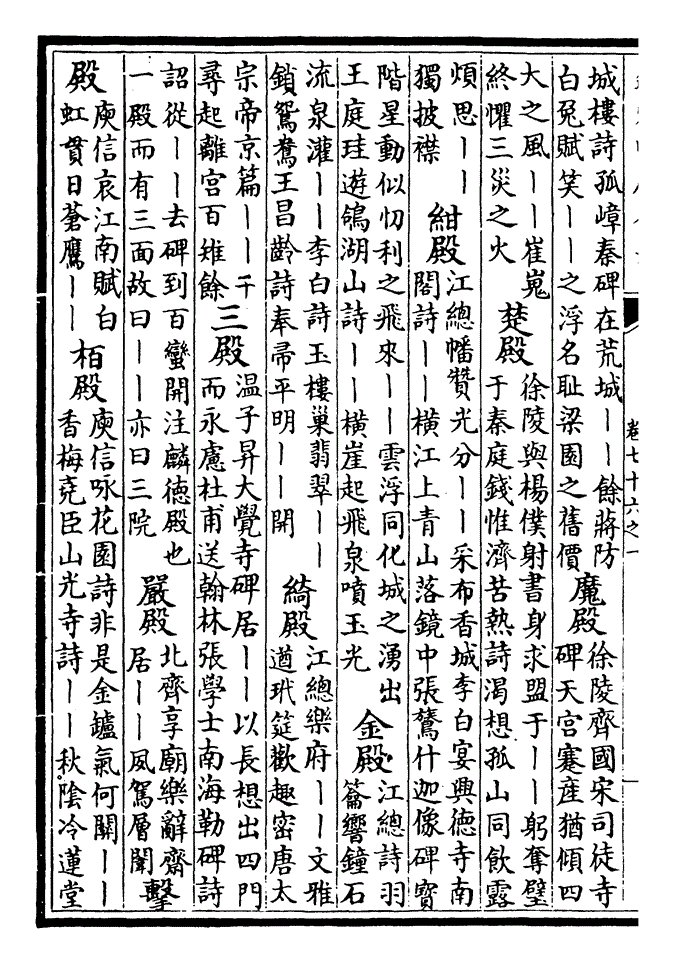 城樓詩孤嶂秦碑在荒城丨丨餘蔣防
白兔賦笑丨丨之浮名耻梁園之舊價
魔殿
徐陵齊國宋司徒寺
碑天宫蹇産猶傾四
大之風丨丨崔嵬
終懼三災之火
楚殿
徐陵與楊僕射書身求盟于丨丨躬奪璧
于秦庭錢惟濟苦熱詩渴想孤山同飲露
煩思丨丨
獨披襟
紺殿
江總幡贊光分丨丨采布香城李白宴興德寺南
閣詩丨丨横江上青山落鏡中張鷟什迦像碑寳
階星動似忉利之飛來丨丨雲浮同化城之湧出
王庭珪遊鴿湖山詩丨丨横崖起飛泉噴玉光
金殿
江總詩羽
籥響鐘石
流泉灌丨丨李白詩玉樓巢翡翠丨丨
鎖鴛鴦王昌齡詩奉帚平明丨丨開
綺殿
江總樂府丨丨文雅
遒玳筵歡趣密唐太
宗帝京篇丨丨千
尋起離宫百雉餘
三殿
温子昇大覺寺碑居丨丨以長想出四門
而永慮杜甫送翰林張學士南海勒碑詩
詔從丨丨去碑到百蠻開注麟德殿也
一殿而有三面故曰丨丨亦曰三院
嚴殿
北齊享廟樂辭齋
居丨丨風駕層闈
擊
殿
庾信哀江南賦白
虹貫日蒼鷹丨丨
栢殿
庾信咏花園詩非是金鑪氣何關丨丨
香梅堯臣山光寺詩丨丨秋陰冷蓮堂
卷七十六之一